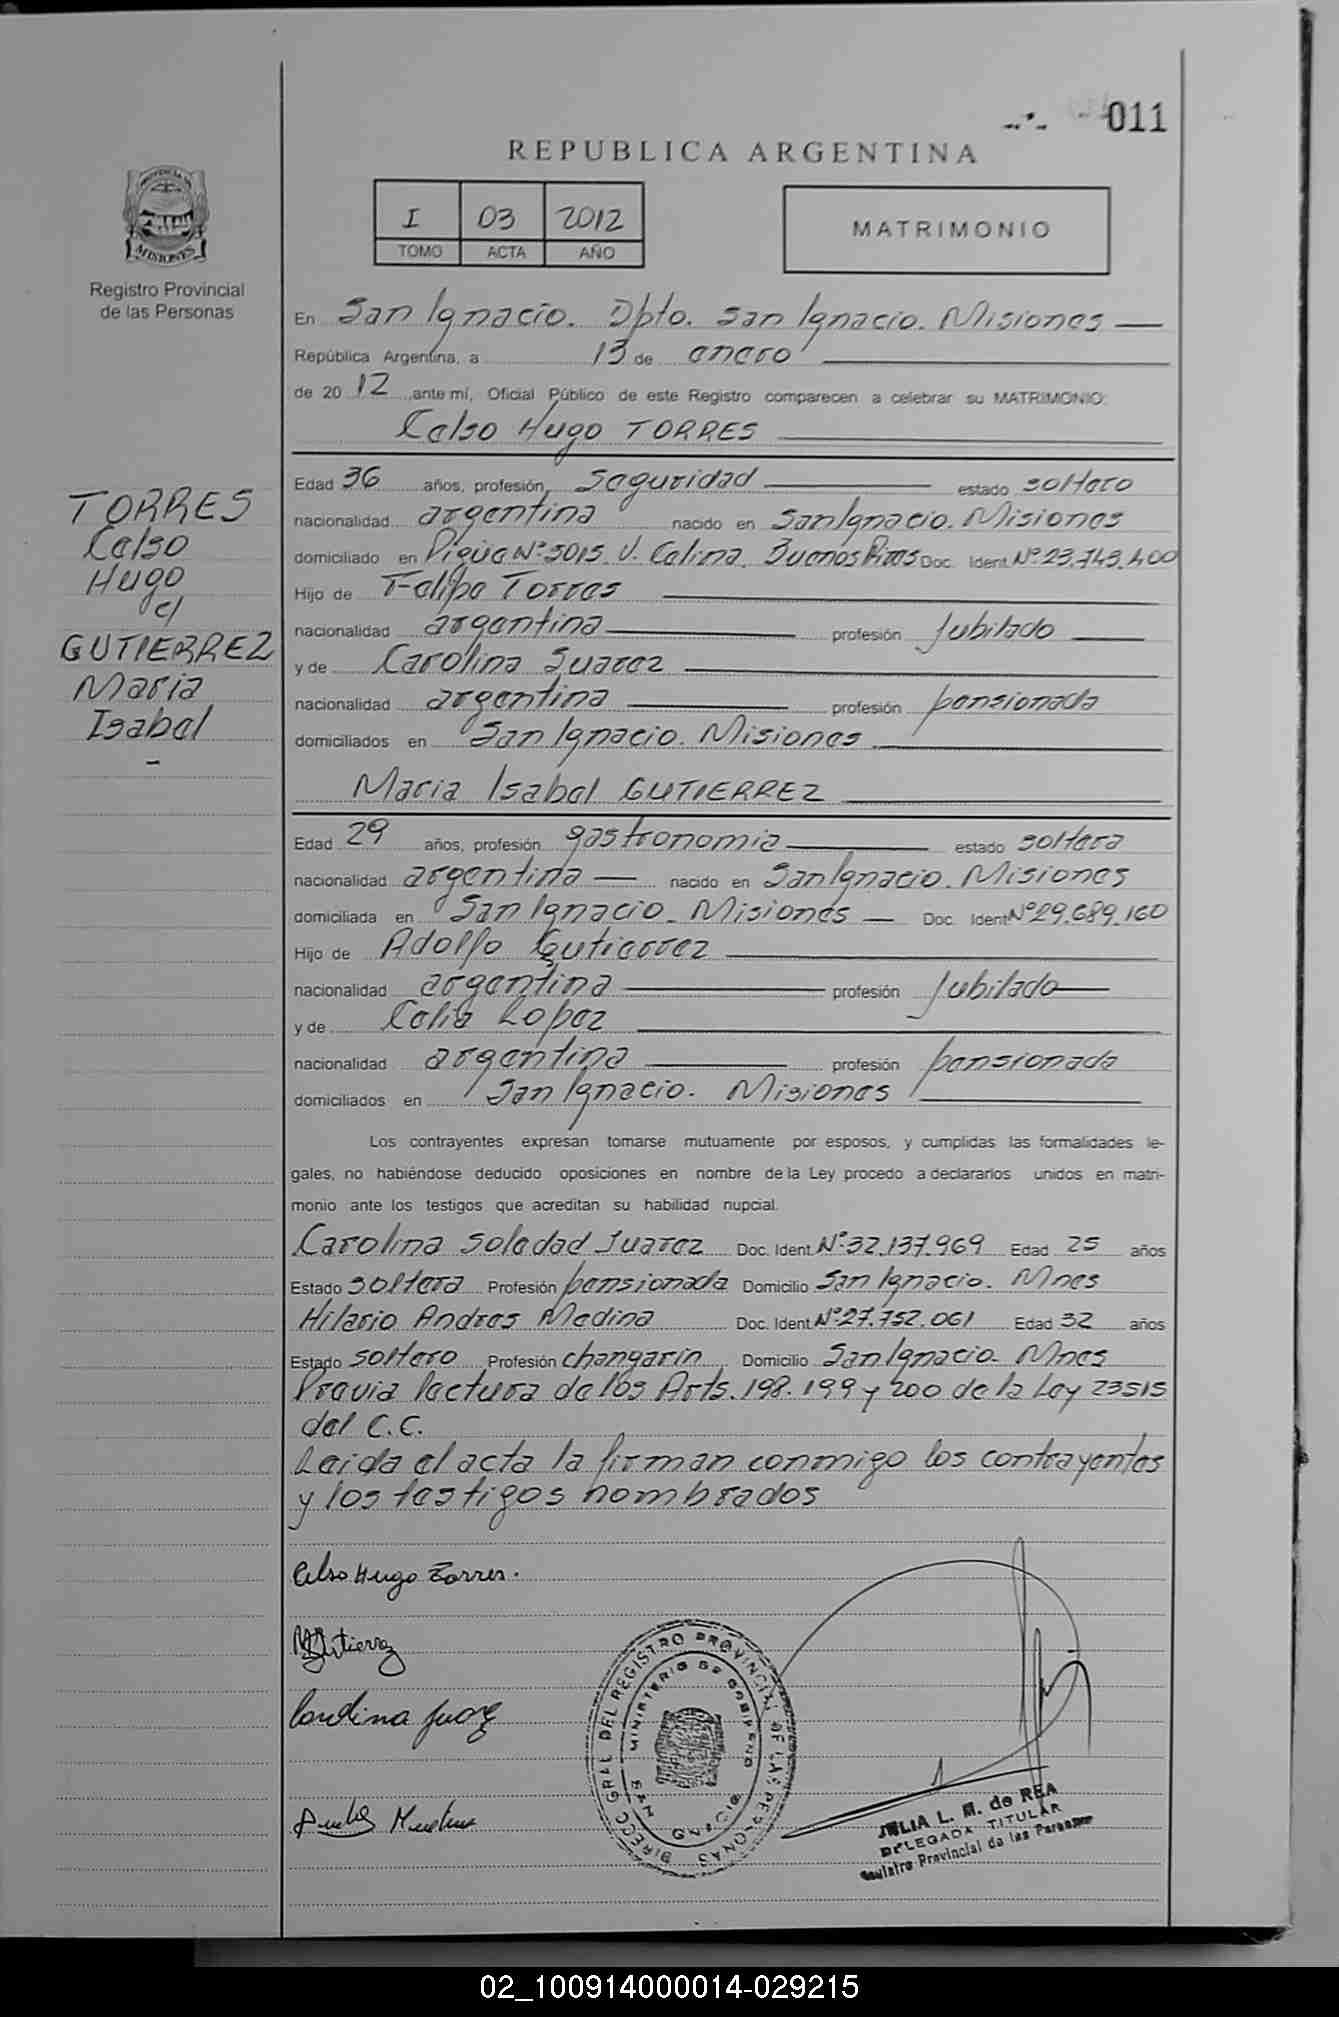 011
REPUBLICA ARGENTINA
PROVINCIA DE
MISIONES
Registro Provincial
de las Personas
I 03 2012
TOMO ACTA AÑO
MATRIMONIO
En San Ignacio. Dpto. San Ignacio. Misiones —
República Argentina, a 13 de enero
de 20 12 ,ante mí, Oficial Público de este Registro comparecen a celebrar su MATRIMONIO:
Celso Hugo TORRES
TORRES
Celso
Hugo
c/
GUTIERREZ
Maria
Isabel
-
Edad 36 años, profesión Seguridad estado soltero
nacionalidad argentina nacido en San Ignacio. Misiones
domiciliado en Pigüe Nº 5015. V. Celina. Buenos Aires Doc. Ident. Nº 23.743.400
Hijo de Felipe Torres
nacionalidad argentina profesión Jubilado
y de Carolina Suarez
nacionalidad argentina profesión pensionada
domiciliados en San Ignacio. Misiones
Maria Isabel GUTIERREZ
Edad 29 años, profesión gastronomia estado soltera
nacionalidad argentina — nacido en San Ignacio. Misiones
domiciliada en San Ignacio. Misiones — Doc. Ident Nº 29.689.160
Hijo de Adolfo Gutierrez
nacionalidad argentina profesión Jubilado
y de Celia Lopez
nacionalidad argentina profesión pensionada
domiciliados en San Ignacio. Misiones
Los contrayentes expresan tomarse mutuamente por esposos, y cumplidas las formalidades le-
gales, no habiéndose deducido oposiciones en nombre de la Ley procedo a declararlos unidos en matri-
monio ante los testigos que acreditan su habilidad nupcial.
Carolina Soledad Juarez Doc. Ident. Nº 32.137.969 Edad 25 años
Estado soltera Profesión pensionada Domicilio San Ignacio. Mnes
Hilario Andres Medina Doc. Ident. Nº 27.752.061 Edad 32 años
Estado soltero Profesión changarín Domicilio San Ignacio. Mnes
Previa lectura de los Arts. 198. 199 y 200 de la Ley 23515
del C.C.
Leida el acta la firman conmigo los contrayentes
y los testigos nombrados
Celso Hugo Torres.
MGutierrez
Carolina Juarez
DIRECC GRAL DEL REGISTRO PROVINCIAL DE LAS PERSONAS
MINISTERIO DE GOBIERNO
SAN IGNACIO
JULIA L. M. de REA
DELEGADA TITULAR
Registro Provincial de las Personas
02_100914000014-029215